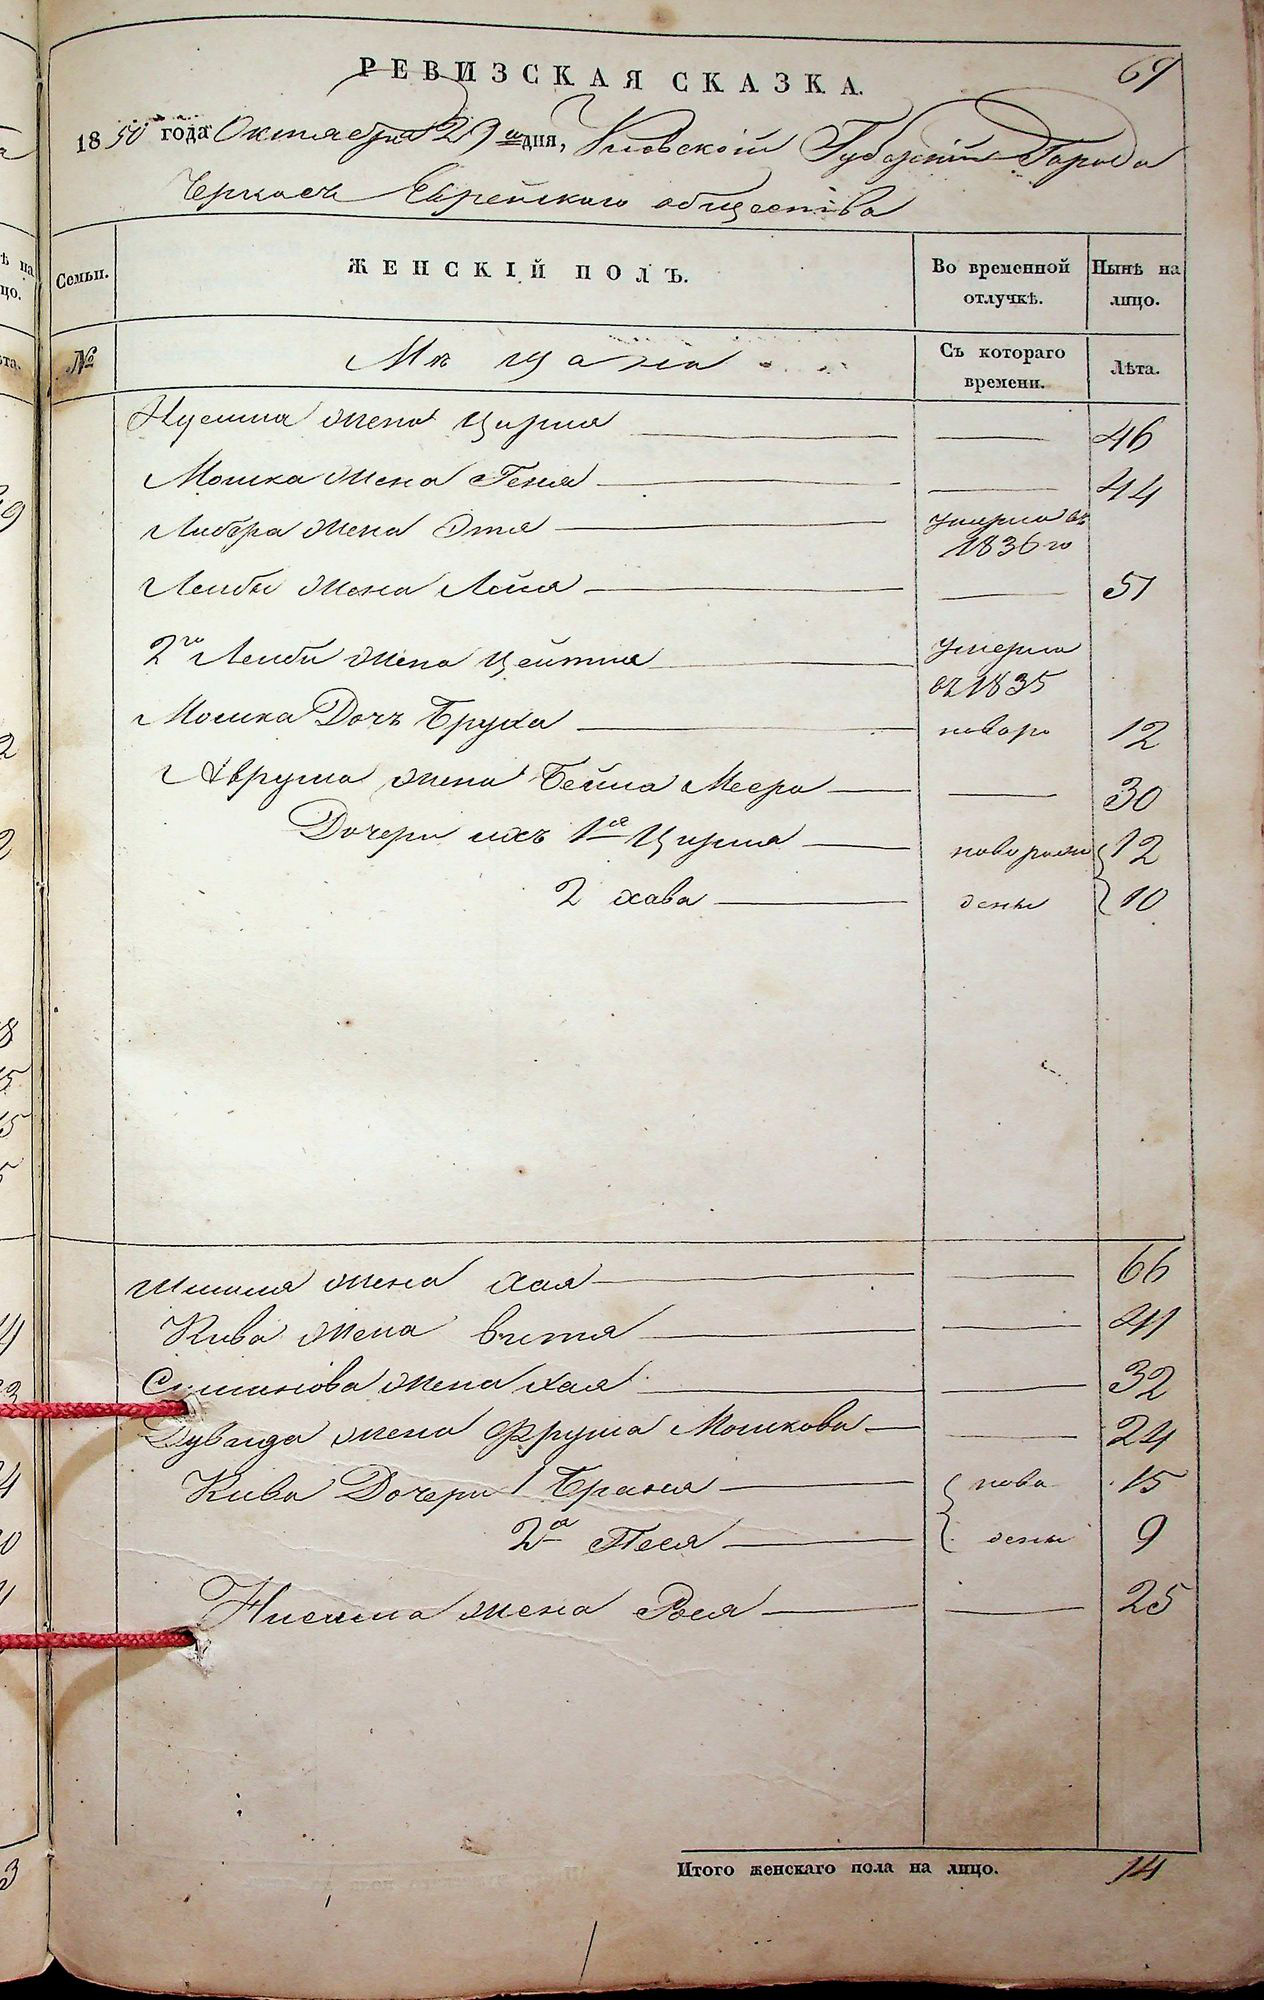 69
РЕВИЗСКАЯ СКАЗКА.
1850 года Октября 29 дня, Киевской Губерніи Города
Черкасъ Еврейского общества
Семьи. ЖЕНСКІЙ ПОЛЪ. Во временной отлучкѣ. Нынѣ на лицо.
№ Мѣщане Съ котораго времени. Лѣта.
жена Цирля 46
Мошка жена Геня 44
Либера жена Этя умерла въ 1836го
Лейбы жена Лея 51
2го Лейбы жена Цейтля умерла въ 1835
Мошка Дочь Бруха новоро 12
Аврума жена Бейла Меера 30
Дочери ихъ 1я Цирля новорож 12
2 Хава дены 10
жена Хая 66
Кива жена Витя 41
жена Хая 32
Дувида жена Фрума Мошкова 24
Кива Дочери 1 Браня ново 15
2я Песя дены 9
жена Рося 25
Итого женскаго пола на лицо. 14